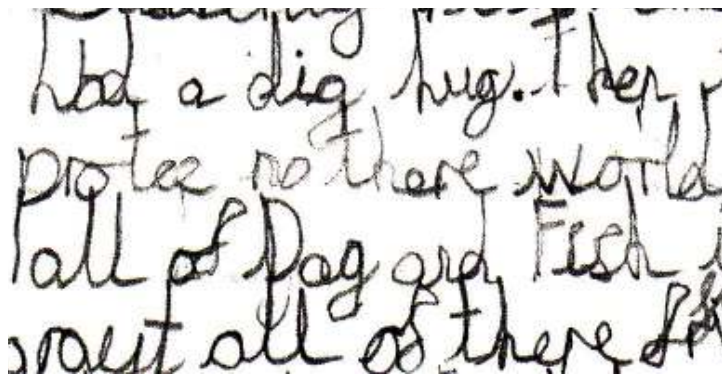 had a dig hug. Then
protee no there world
all of Dog and Fish
all of there